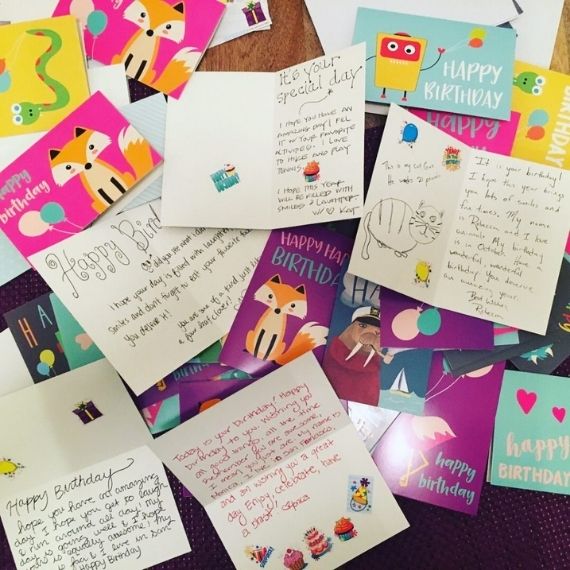 HAPPY
BIRTHDAY
happy
birthday
It's your
special day
I HOPE YOU HAVE AN
AMAZING DAY! FILL
IT W/ YOUR FAVORITE
ACTIVITIES. I LOVE
TO HIKE AND PLAY
TENNIS.
I HOPE THIS YEAR
WILL BE FILLED WITH
SMILES & LAUGHTER
This is my cat
He weighs 22 pounds
It is your birthday!
I hope this year brings
you lots of smiles and
fun times. My name
is Rebecca and I love
animals. My birthday
is in October. Have a
wonderful, wonderful
birthday. You deserve
an amazing year.
Best wishes,
Rebecca
Happy Bird
I hope your day is filled with laughter
smiles and don't forget to eat your favorite
you deserve it!
you are one of a kind, just like
a four leaf clover!
HAPPY
BIRTHDAY
HAPPY
BIRTHDAY
happy
birthday
happy
birthday
Today is your birthday! Happy
birthday to you. Wishing you
all good things, all the time.
Just remember you are awesome,
and an
wishing you a great
day. Enjoy, celebrate, have
a blast!
Happy Birthday
hope you have an amazing
day. I hope you get to laugh
& run around all day! My
day is going well & I hope
this is equally awesome! My
I live in San
Happy Birthday